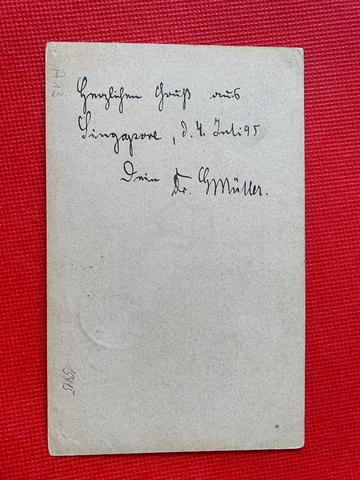 A13
Herzlichen Gruß aus
Singapore, d. 4. Juli 95
Dein
Dr. GMüller.